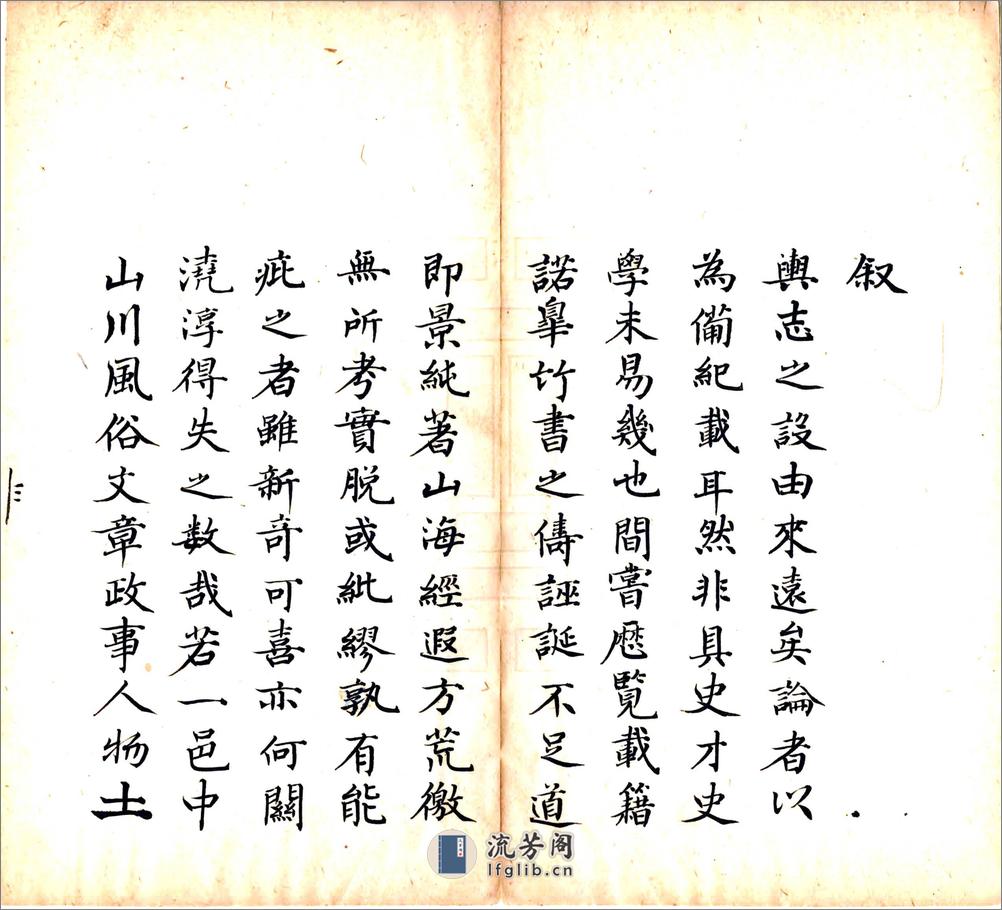 叙
輿志之設由來遠矣論者以
為備紀載耳然非具史才史
學未易幾也間嘗歷覽載籍
諾皋竹書之儔誣誕不足道
即景純著山海經遐方荒徼
無所考實脫或紕繆孰有能
疵之者雖新奇可喜亦何關
澆淳得失之数哉若一邑中
山川風俗文章政事人物土
流芳阁
lfglib.cn